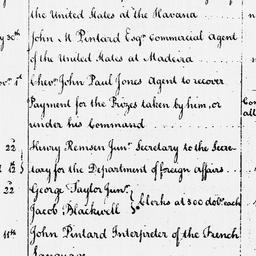 the United States at the Havana
y 30th John M Pintard Esqr. Commercial Agent
of the United States at Madeira
ov. 1st Chevr. John Paul Jones Agent to recover
Payment for the Prizes taken by him, or
under his Command
22d Henry Remsen Junr. Secretary to the Secre-
12 tary for the Department of foreign affairs
22 George Taylor Junr.
Jacob Blackwell } Clerks at 500 dolrs. each
11th John Pintard Interpreter of the French
Language